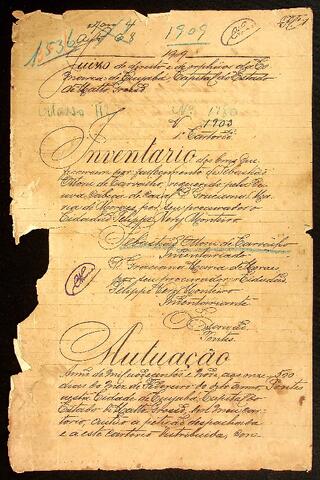 1909
1909
Juizo de direito e de orphãos da Co
marca de Cuyabá Capital do Estado
de Matto Grosso
Nº 1780
1909
Cartorio
Inventario dos bens que
ficaram por fallecimento de Sebastião
de Carvalho, requerido pela
viuva Cabeça de Casal D. Graciana Ma
ria de Moraes, por seu procurador o
Cidadão Felippe Nery Monteiro
Sebastião de Carvalho
Inventariado
D. Graciana Maria de Moraes
por seu procurador o Cidadão
Felippe Nery Monteiro
Inventariante
O Escrivão
Pontes
Autuação
Anno de mil novecentos e nove, aos
dias do mez de Fevereiro do dito anno,
nesta Cidade de Cuyabá, Capital do
Estado de Matto Grosso, em meu car
torio, autuo a petição despachada
e a este cartorio distribuida, com